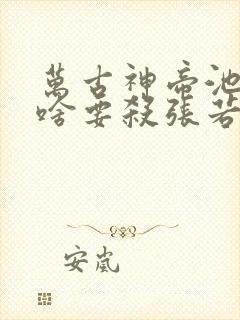 萬古神帝池
啥要殺張若
安嵐